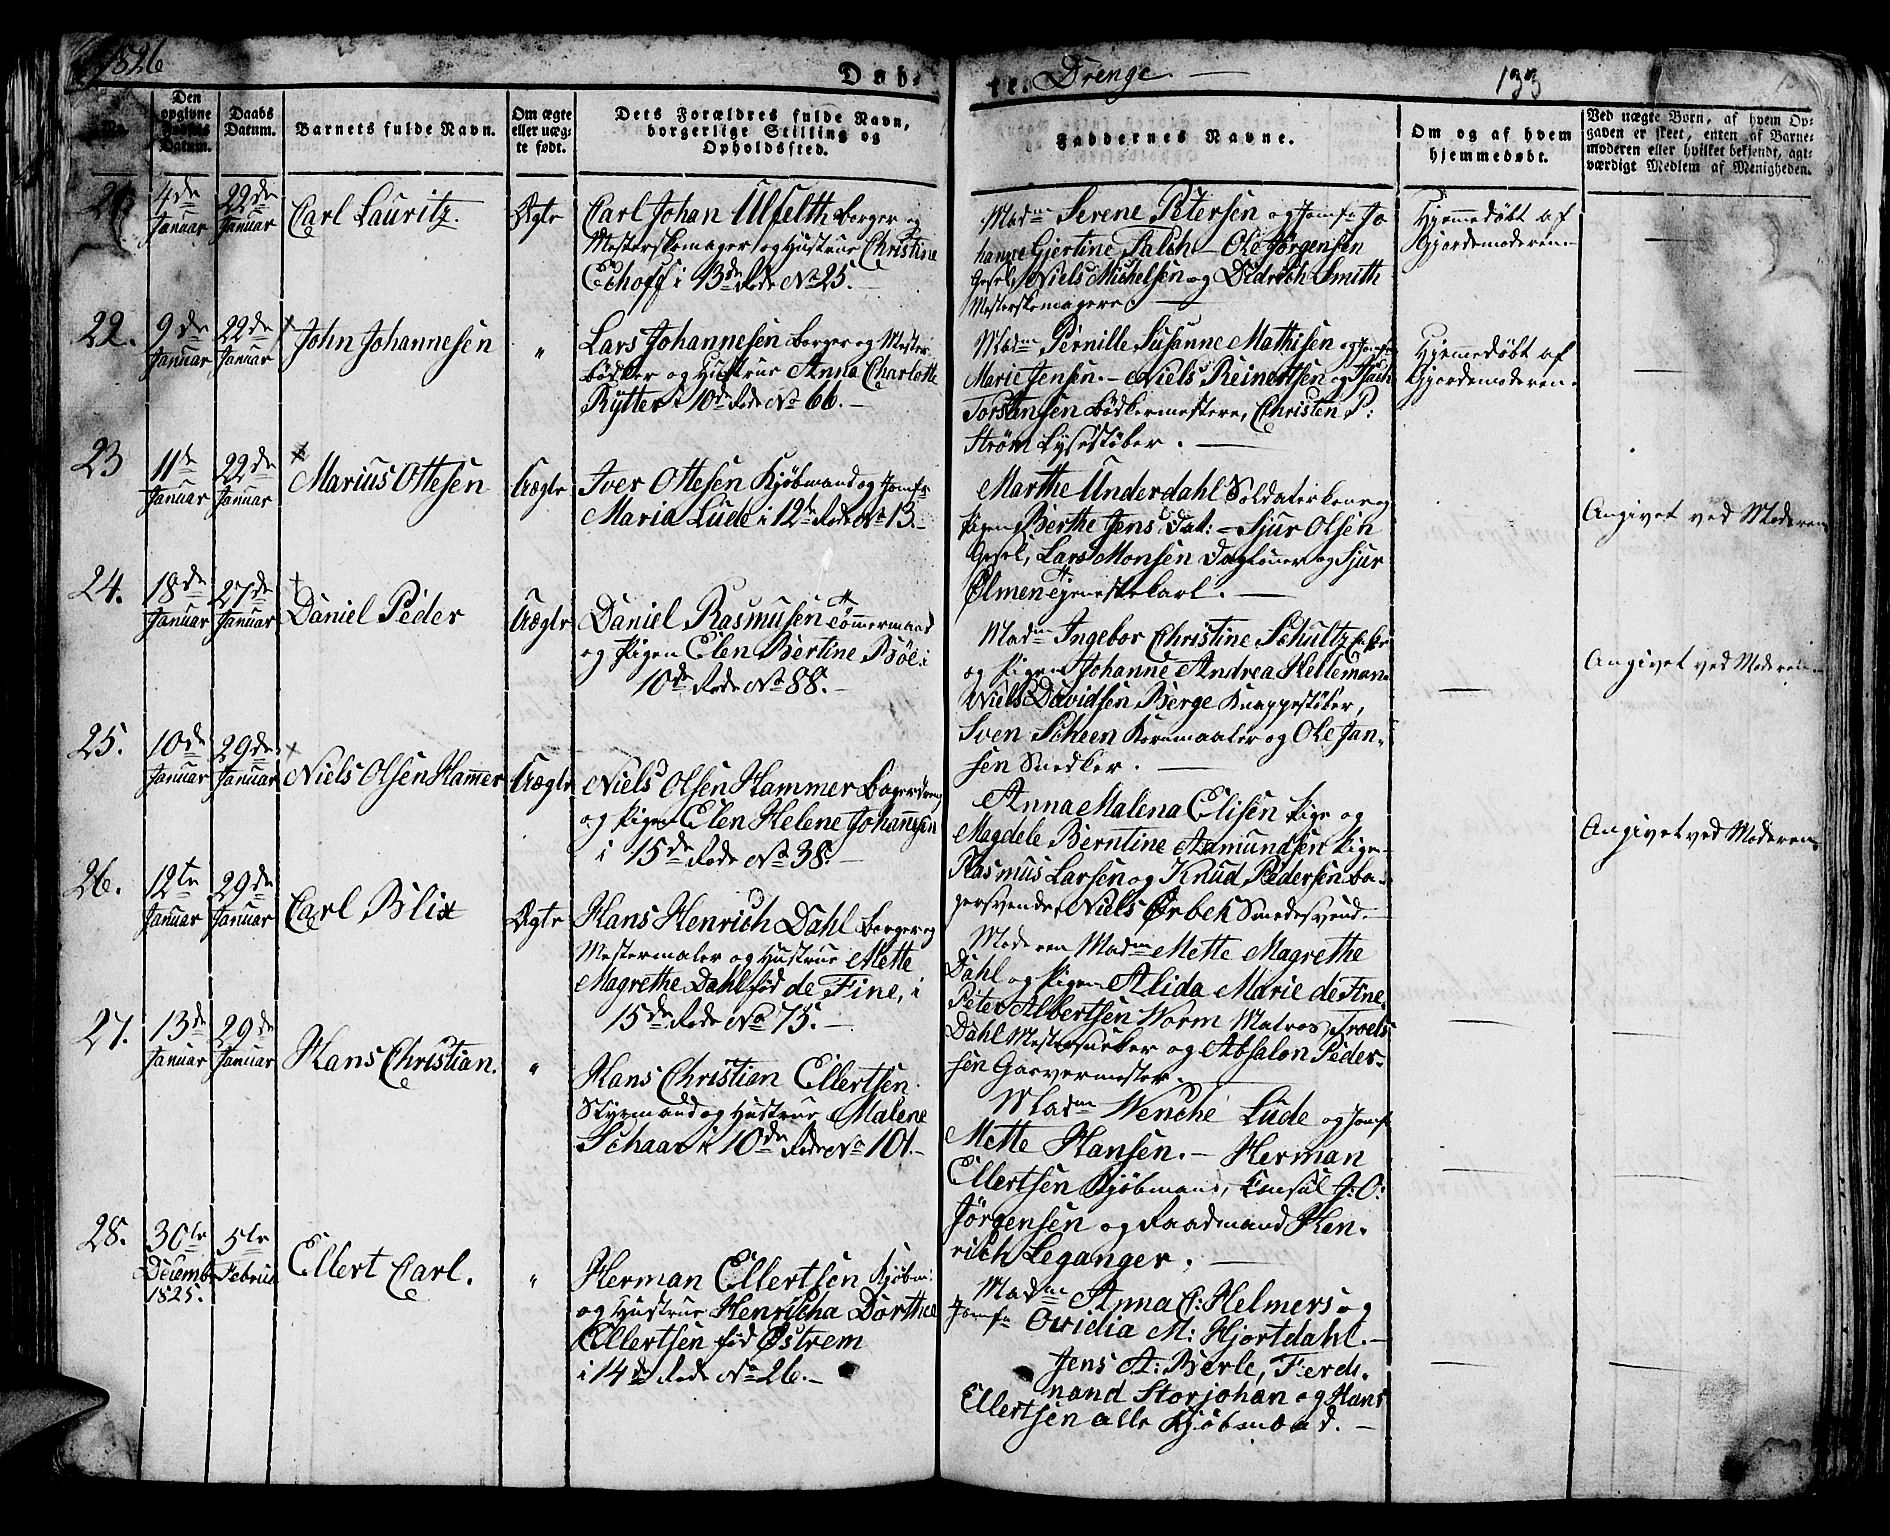 1826
Døb-
te. Drenge. —
133
No.
Den opgivne Fødsels Datum.
Daabs Datum.
Barnets fulde Navn.
Om ægte eller uægte født.
Dets Forældres fulde Navn, borgerlige Stilling og Opholdsfted.
Faddernes Navne.
Om og af hvem hjemmedøbt.
Ved uægte Børn, af hvem Opgaven er skeet, enten af Barnemoderen eller hvilket bekjendt, agtværdigt Medlem af Menigheden.
21
4de Januar
22de Januar
Carl Lauritz.
Ægte
Carl Johan Ulfelth borger og
Mesterskomager og Hustrue Christine
Echoff i 13de Rode No 25. —
Madme Serene Petersen og Jomfr Jo
hanne Gjertine Falch — Ole Jørgensen
Gesel, Niels Michelsen og Didrich Smith
Mesterskomagere. —
Hjemmedøbt af
Gjordemoderen. —
22.
9de Januar
22de Januar
John Johannesen
"
Lars Johannesen borger og Mester
bødker og Hustrue Anna Charlotte
Rytter i 10de Rode No 66. —
Madme Pernille Susanne Mathisen og Jomfr
Marie Jensen. — Niels Reinertsen og
Torstensen bødkermestere, Christen P:
Strøm Lysestøber. —
Hjemmedøbt af
Gjordemoderen.
23
11te Januar
22de Januar
Marius Ottesen
Uægte
Iver Ottesen Kjøbmand og Jomfr
Maria Lude i 12te Rode No 13. —
Marthe Underdahl Soldaterkone og
Pigen Berthe Jens Dat: — Sjur Olsen
Gesel, Lars Monsen Dagløner og Sjur
Ølmen tjenestekarl. —
Angivet ved Moderen
24.
18de Januar
27de Januar
Daniel Peder
Uægte
Daniel Rasmusen tømmermand
og Pigen Elen Bertine Bøe i
10de Rode No 88. —
Madme Ingebor Christine Schultz
og Pigen Johanne Andrea Helleman
Niels Davidsen Berge Knappestøber,
Sven Scheen Kornmaaler og Ole Jan-
sen Snedker. —
Angivet ved Moderen
25.
10de Januar
29de Januar
Niels Olsen Hammer
Uægte
Niels Olsen Hammer bagerdreng
og Pigen Elen Helene Johannesen
i 15de Rode No 38. —
Anna Malena Elisen Pige og
Magdele Berntine Aamundsen Pige —
Rasmus Larsen og Knud Pedersen ba-
gersvende, Niels Ørbek Smedesvend. —
Angivet ved Moderen
26.
12te Januar
29de Januar
Carl Blix
Ægte
Hans Henrich Dahl borger og
Mestermaler og Hustrue Mette
Magrethe Dahl fød de Fine, i
15de Rode No 75. —
Moderen Madme Mette Magrethe
Dahl og Pigen Alida Marie de Fine.
Peter Albertsen Worm Matros, Troels
Dahl og Absalon Peder-
sen Garvermester.
27.
13de Januar
29de Januar
Hans Christian.
"
Hans Christian Ellertsen
Styrmand og Hustrue Malene
Schaar i 10de Rode No 101. —
Madme Wenche Lude og Jomfr
Mette Hansen. — Herman
Ellertsen Kjøbmand, Consul J: O:
Jørgensen og Raadmand Hen-
rich Leganger. —
28.
30te Decembr 1825.
5te Februar
Ellert Carl.
"
Herman Ellertsen Kjøbm:
og Hustrue Henricha Dorthea
Ellertsen fød Østrem
i 14de Rode No 26. —
Madme Anna C: Helmers og
Jomfr Ovidia M: Hjortdahl. —
Jens A: Berle, Ferdi-
nand Storjohan og Hans
Ellertsen alle Kjøbmænd. —